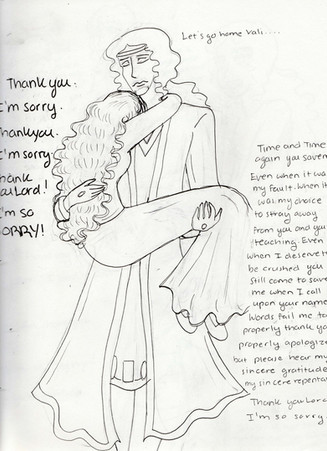 Let's go home Vali....
Thank you.
I'm sorry.
Thankyou.
I'm sorry.
Thank
You Lord!
I'm so
SORRY!
Time and Time
again you saved
Even when it was
my fault. when it
was my choice
to stray away
from you and you
teaching. Even
when I deserve to
be crushed you
still come to save
me when I call
upon your name
Words fail me to
properly thank you
properly apologize
but please hear my
sincere gratitude
my sincere repentan
Thank you Lord
I'm so sorry.